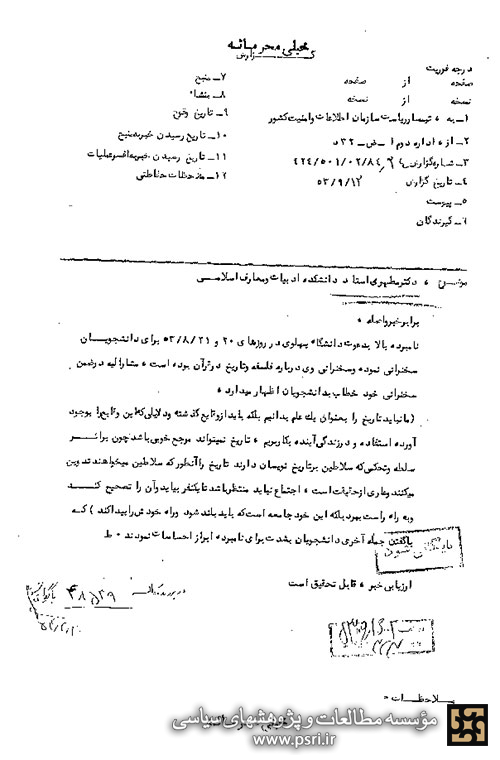 خیلی محرمانه
گزارش
درجه فوریت
صفحه از صفحه
نسخه از نسخه
۱- به : تیمسار ریاست سازمان اطلاعات و امنیت کشور
۲- از : اداره دوم
۳- شماره گزارش ۴۲۴/۵۰۱/۰۲/۸۴
۴- تاریخ گزارش ۵۳/۹/۱۲
۵- پیوست
۶- گیرندگان
۷- منبع
۸- منشاء
۹- تاریخ وقوع
۱۰- تاریخ رسیدن خبر به منبع
۱۱- تاریخ رسیدن خبر به افسر عملیات
۱۲- ملاحظات حفاظتی
موضوع : دکتر مطهری استاد دانشکده ادبیات و معارف اسلامی
برابر خبر واصله :
نامبرده بالا بدعوت دانشگاه پهلوی در روزهای ۲۰ و ۵۳/۸/۲۱ برای دانشجویان
سخنرانی نموده و سخنرانی وی درباره فلسفه و تاریخ در قرآن بوده است . مشارالیه در ضمن
سخنرانی خود خطاب بدانشجویان اظهار میدارد .
( ما نباید تاریخ را بعنوان یک علم بدانیم بلکه باید از وقایع گذشته و دلایلی که این وقایع را بوجود
آورده استفاده و در زندگی آینده بکار بریم . تاریخ نمیتواند مرجع خوبی باشد چون بر اثر
سلطه و تحکمی که سلاطین بر تاریخ نویسان دارند تاریخ را آنطور که سلاطین میخواهند تدوین
میکنند و عاری از حقیقت است . اجتماع نباید منتظر باشد تا یکنفر بیاید و آن را تصحیح کند
و به راه راست ببرد بلکه این خود جامعه است که باید بلند شود و راه خودش را پیدا کند ) که
با گفتن جمله آخری دانشجویان بشدت برای نامبرده ابراز احساسات نمودند . ط
بایگانی شود
ارزیابی خبر : قابل تحقیق است
۴۸۵۲۹
ملاحظات :
مؤسسه مطالعات و پژوهشهای سیاسی
www.psri.ir